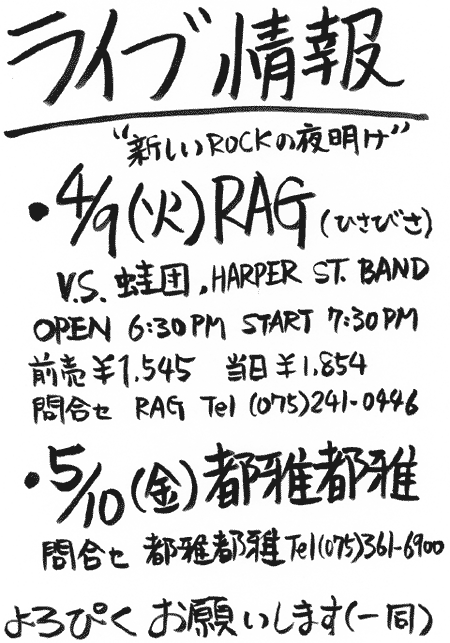 ライブ情報
"新しいROCKの夜明け"
・4/9(火)RAG(ひさびさ)
V.S. 蛙団, HARPER ST. BAND
OPEN 6:30PM START 7:30PM
前売¥1.545 当日¥1.854
問合せ RAG Tel (075)241-0446
・5/10(金)都雅都雅
問合せ 都雅都雅Tel(075)361-6900
よろぴく お願いします(一同)